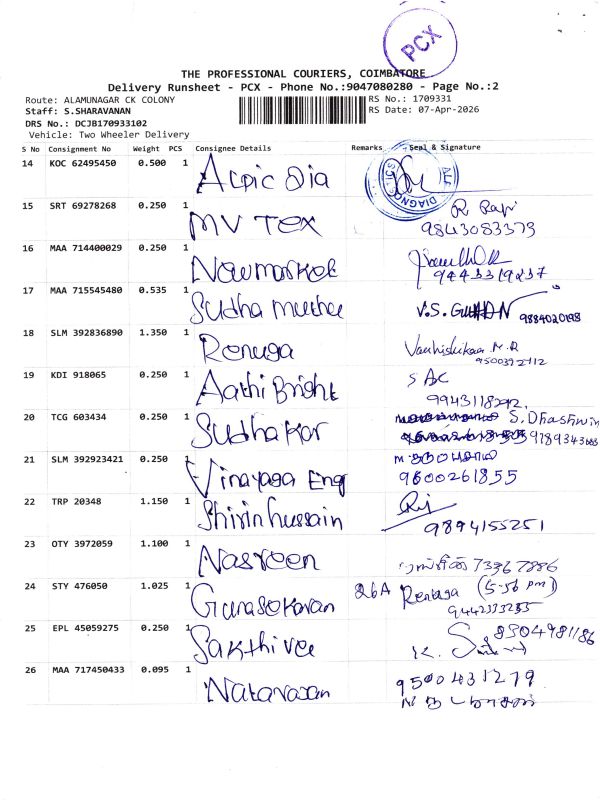 PCX
THE PROFESSIONAL COURIERS, COIMBATORE
Delivery Runsheet - PCX - Phone No.:9047080280 - Page No.:2
Route: ALAMUNAGAR CK COLONY
RS No.: 1709331
Staff: S.SHARAVANAN
RS Date: 07-Apr-2026
DRS No.: DCJB170933102
Vehicle: Two Wheeler Delivery
S No Consignment No Weight PCS Consignee Details Remarks Seal & Signature
14 KOC 62495450 0.500 1 Alpic Dia
15 SRT 69278268 0.250 1 MV TEX R Raji
9843083373
16 MAA 714400029 0.250 1 Newmarket
9443319237
17 MAA 715545480 0.535 1 Sudha Muthu V.S. GUHAN 9884020198
18 SLM 392836890 1.350 1 Renuga
19 KDI 918065 0.250 1 Aathi Bright SAC
20 TCG 603434 0.250 1 Sudhakar S. Dhashwin
21 SLM 392923421 0.250 1 Vinayaga Eng 9600261855
22 TRP 20348 1.150 1 Shirin hussain
9894155251
23 OTY 3972059 1.100 1 Nasreen 73367886
24 STY 476050 1.025 1 Gunasekaran 26A Renuga (5:56 pm)
25 EPL 45059275 0.250 1 Sakthivel 8304981186
26 MAA 717450433 0.095 1 Natarasan 9500431279